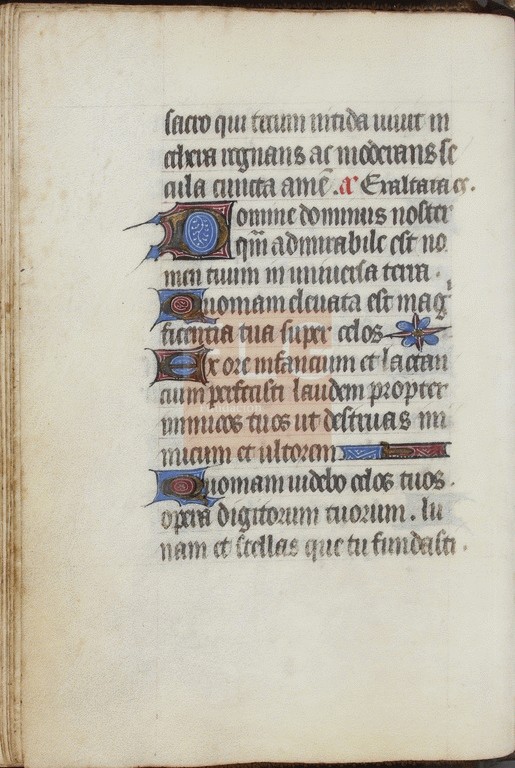 sacro qui tecum nitida uiuit in
ethera regnans ac moderans se
cula cuncta amē. a Exaltata es.
Domine dominus noster
qm̄ admirabile est no
men tuum in uniuersa terra.
Quoniam eleuata est mag
ficencia tua super celos
Ex ore infancium et lactan
cium perfecisti laudem propter
inimicos tuos ut destruas ini
micum et ultorem
Quoniam uidebo celos tuos.
opera digitorum tuorum. lu
nam et stellas que tu fundasti.